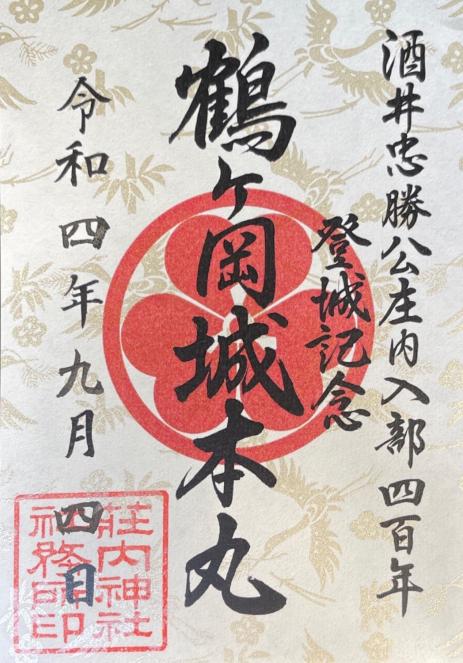 酒井忠勝公庄内入部四百年
登城記念
鶴ヶ岡城本丸
令和四年九月四日
荘内神社
社務所印